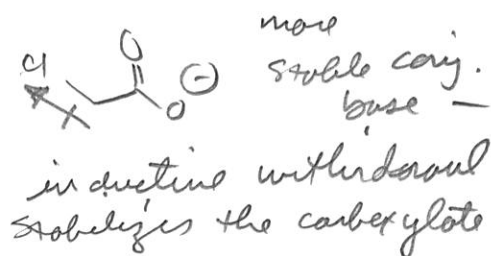 more
stable conj.
base —
Cl
O
O
⊖
inductive withdrawal
stabilizes the carboxylate